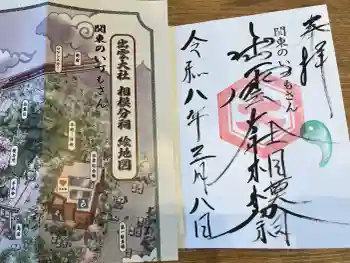 関東のいずもさん
出雲大社 相模分祠 絵地図
奉拝
関東のいずもさん
出雲大社相模分祠
令和八年三月八日